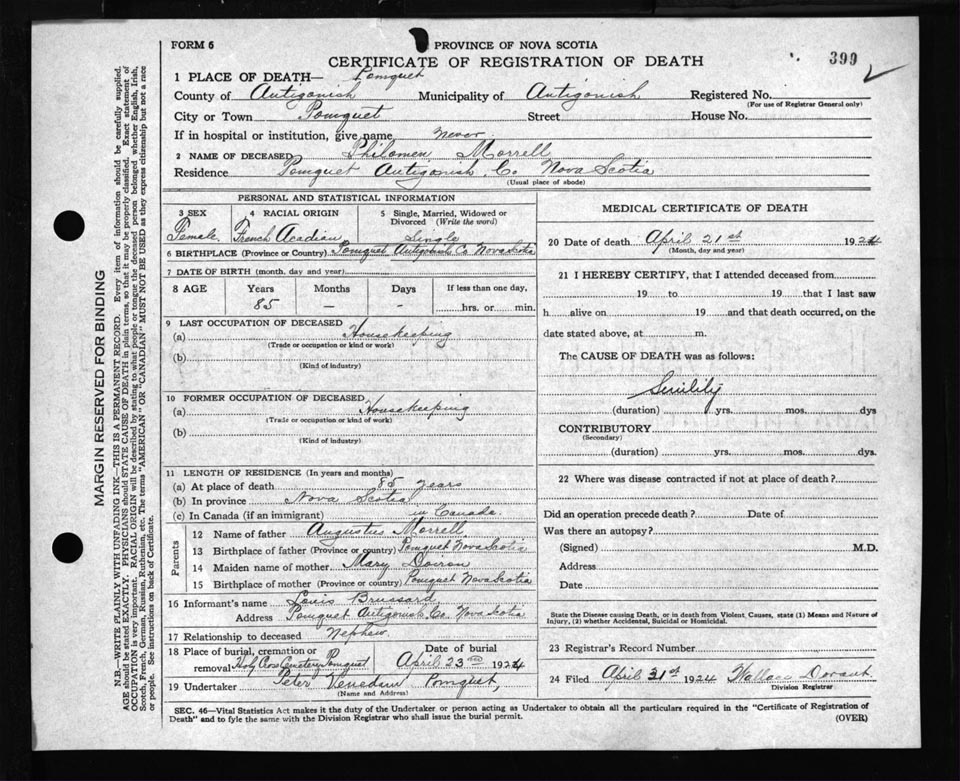 FORM 6
PROVINCE OF NOVA SCOTIA
CERTIFICATE OF REGISTRATION OF DEATH
399
1 PLACE OF DEATH— Pomquet
County of Antigonish Municipality of Antigonish Registered No.
(For use of Registrar General only)
City or Town Pomquet Street House No.
If in hospital or institution, give name never
2 NAME OF DECEASED Philomen Morrell
Residence Pomquet Antigonish Co Nova Scotia
(Usual place of abode)
PERSONAL AND STATISTICAL INFORMATION
3 SEX 4 RACIAL ORIGIN 5 Single, Married, Widowed or Divorced (Write the word)
Female French Acadian Single
6 BIRTHPLACE (Province or Country) Pomquet Antigonish Co Nova Scotia
7 DATE OF BIRTH (month, day and year)
8 AGE Years Months Days If less than one day,
85 — - hrs. or min.
9 LAST OCCUPATION OF DECEASED
(a) Housekeeping
(Trade or occupation or kind or work)
(b)
(Kind of industry)
10 FORMER OCCUPATION OF DECEASED
(a) Housekeeping
(Trade or occupation or kind of work)
(b)
(Kind of industry)
11 LENGTH OF RESIDENCE (In years and months)
(a) At place of death 85 years
(b) In province Nova Scotia
(c) In Canada (if an immigrant) in Canada
Parents
12 Name of father Augustus Morrell
13 Birthplace of father (Province or country) Pomquet Nova Scotia
14 Maiden name of mother Mary Doiron
15 Birthplace of mother (Province or country) Pomquet Nova Scotia
16 Informant's name Louis Brussard
Address Pomquet Antigonish Co. Nova Scotia
17 Relationship to deceased Nephew
18 Place of burial, cremation or removal Holy Cross Cemetery Pomquet
Date of burial
April 23 1924
19 Undertaker Peter Pomquet,
(Name and Address)
MEDICAL CERTIFICATE OF DEATH
20 Date of death April 21st 1924
(Month, day and year)
21 I HEREBY CERTIFY, that I attended deceased from
19 to 19 that I last saw
h alive on 19 and that death occurred, on the
date stated above, at m.
The CAUSE OF DEATH was as follows:
Senility
(duration) yrs. mos. dys
CONTRIBUTORY
(Secondary)
(duration) yrs. mos. dys.
22 Where was disease contracted if not at place of death?
Did an operation precede death? Date of
Was there an autopsy?
(Signed) M.D.
Address
Date
State the Disease causing Death, or in death from Violent Causes, state (1) Means and Nature of
Injury, (2) whether Accidental, Suicidal or Homicidal.
23 Registrar's Record Number
24 Filed April 31st 1924 Wallace
Division Registrar
SEC. 46—Vital Statistics Act makes it the duty of the Undertaker or person acting as Undertaker to obtain all the particulars required in the "Certificate of Registration of
Death" and to fyle the same with the Division Registrar who shall issue the burial permit.
(OVER)
MARGIN RESERVED FOR BINDING
N.B.—WRITE PLAINLY WITH UNFADING INK—THIS IS A PERMANENT RECORD. Every item of information should be carefully supplied.
AGE should be stated EXACTLY. PHYSICIANS should STATE CAUSE OF DEATH in plain terms, so that it may be properly classified. Exact statement of
OCCUPATION is very important. RACIAL ORIGIN will be described by stating to what people or tongue the deceased person belonged whether English, Irish,
Scotch, French, German, Russian, Ruthenian, etc. The terms "AMERICAN" OR "CANADIAN" MUST NOT BE USED as they express citizenship but not a race
or people. See instructions on back of Certificate.